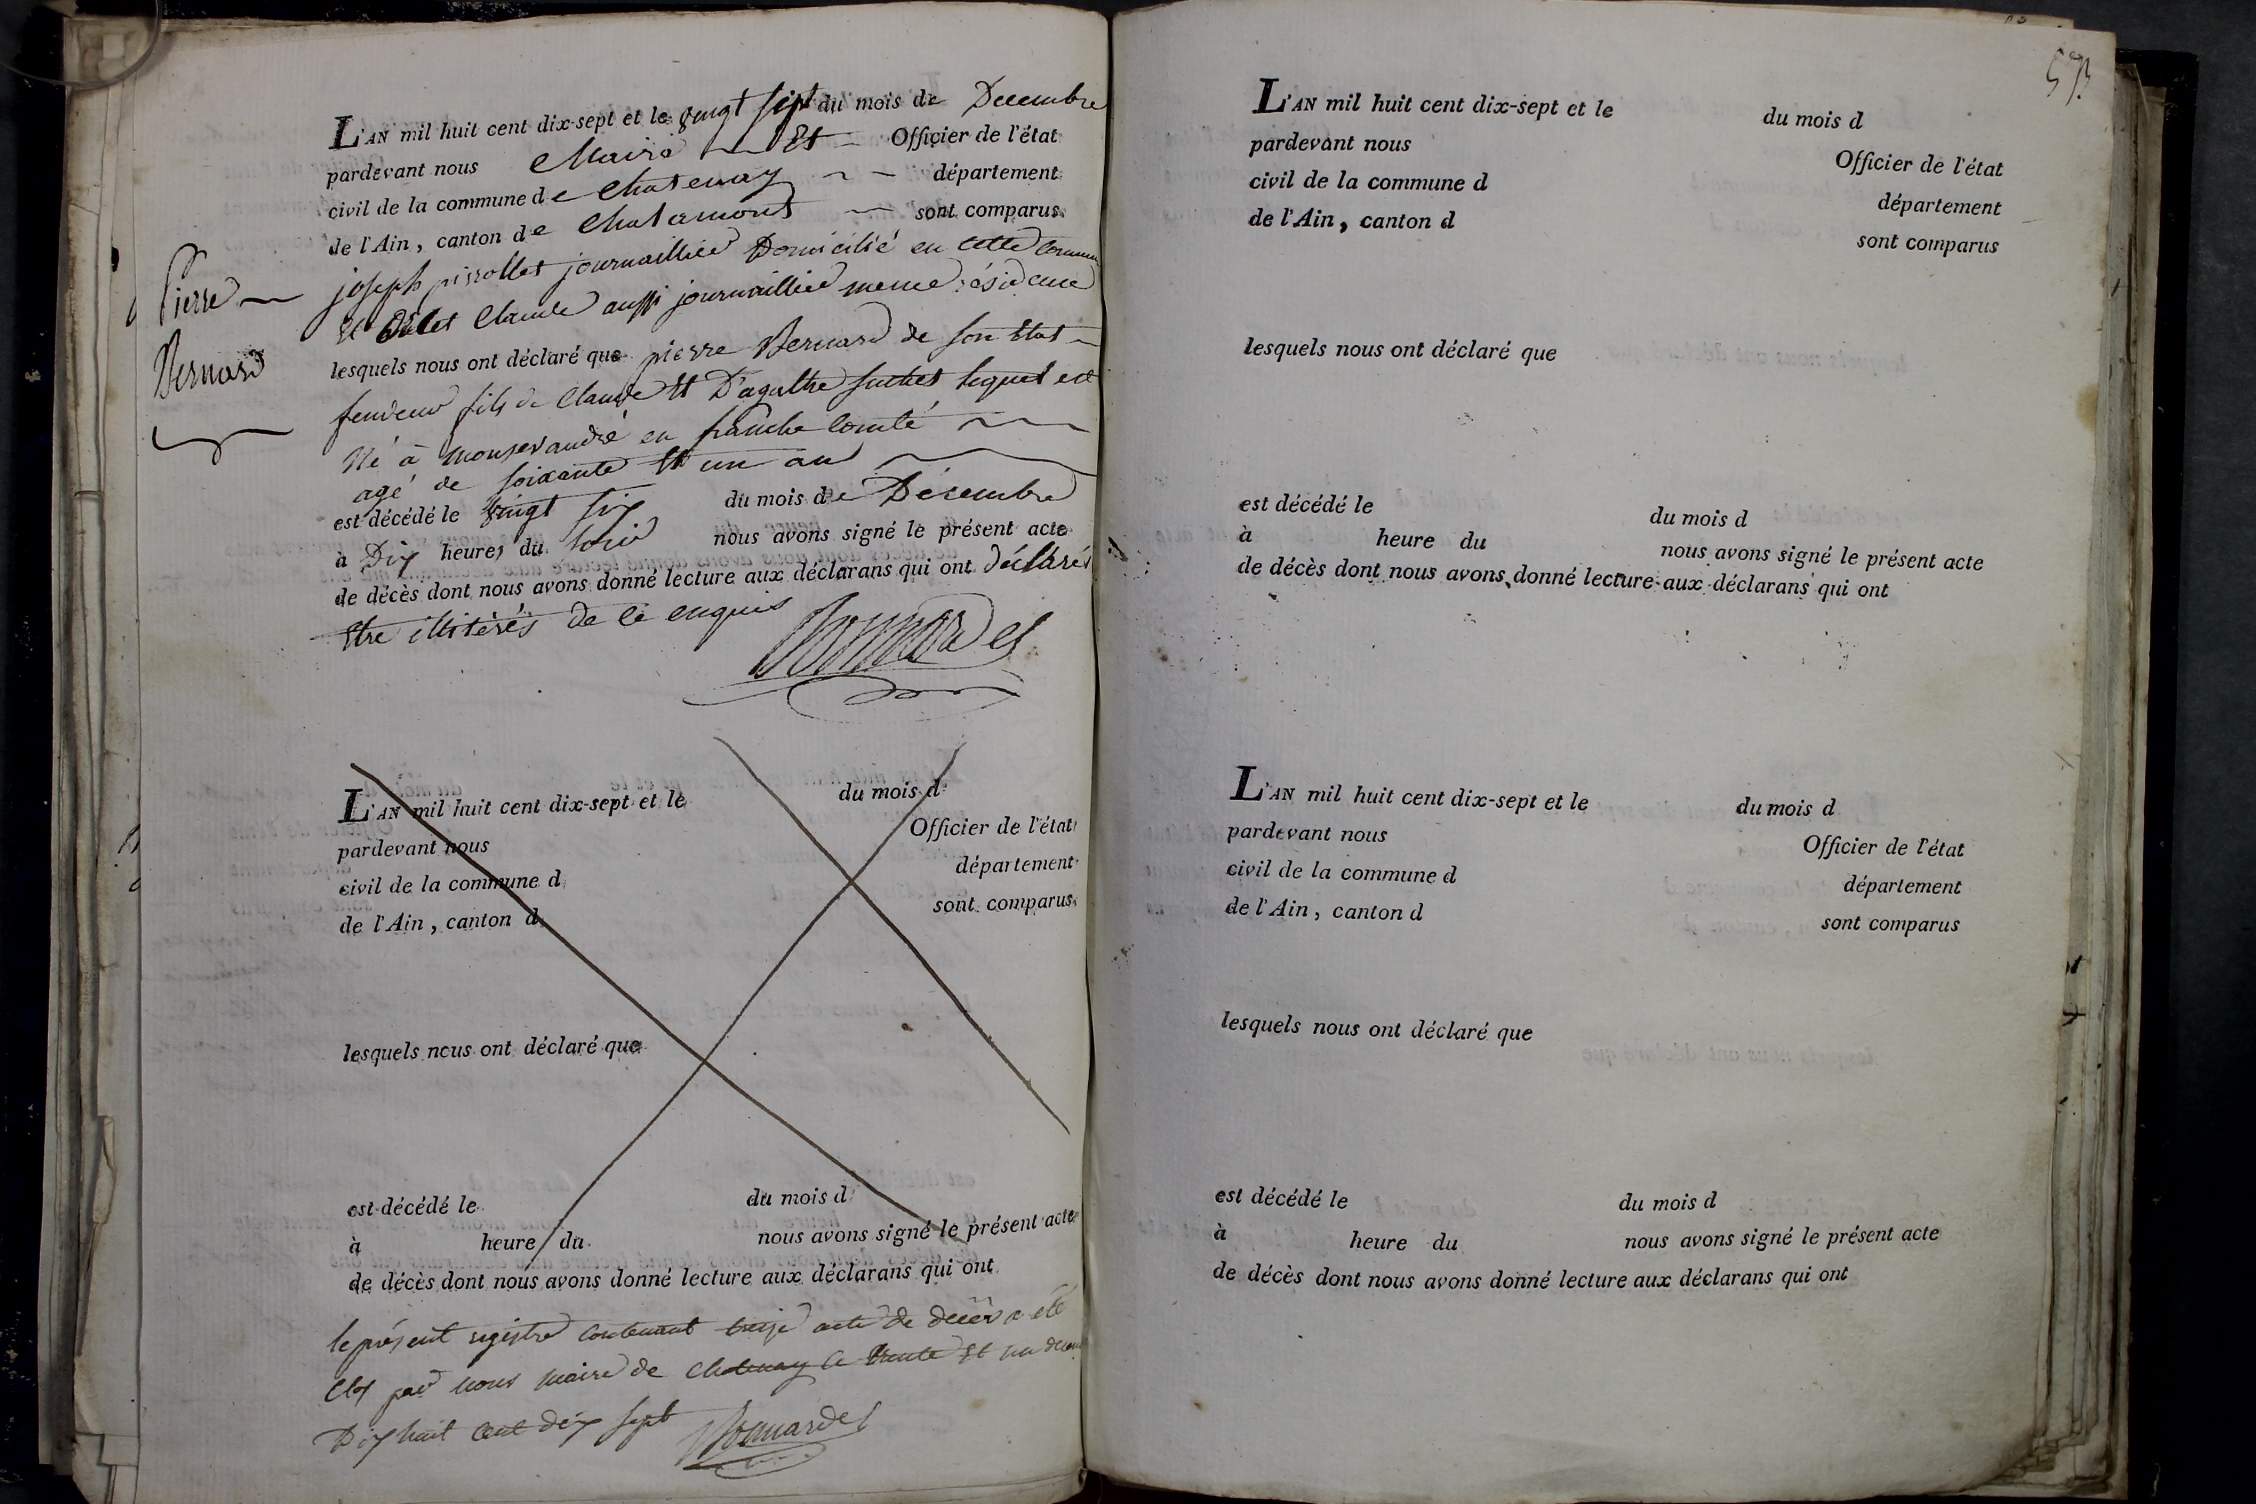 L'AN mil huit cent dix-sept et le vingt sept du mois de Decembre
pardevant nous Maire Et Officier de l'état
civil de la commune de Chatenay département
de l'Ain, canton de Chalamont sont comparus
joseph pirollet journaillié Domicilié en cette Commune
et Claude aussi journaillié meme résidence
Pierre
Bernard
lesquels nous ont déclaré que pierre Bernard de son Etat
fendeur fils de Claude Et D'agathe lequel est
Né à en franche Comté
agé de soixante Et un an
est décédé le vingt six du mois de Décembre
à Dix heures du soir nous avons signé le présent acte
de décès dont nous avons donné lecture aux déclarans qui ont déclarés
Etre illitérés de ce enquis
Bonnardel
L'AN mil huit cent dix-sept et le du mois d
pardevant nous Officier de l'état
civil de la commune d département
de l'Ain, canton d sont comparus
lesquels nous ont déclaré que
est décédé le du mois d
à heure du nous avons signé le présent acte
de décès dont nous avons donné lecture aux déclarans qui ont
le présent registre contenant treize acte de decès a été
Clos par nous maire de Chatenay le trente Et un decem
Dix huit Cent dix sept Bonnardel
573
L'AN mil huit cent dix-sept et le du mois d
pardevant nous Officier de l'état
civil de la commune d département
de l'Ain, canton d sont comparus
lesquels nous ont déclaré que
est décédé le du mois d
à heure du nous avons signé le présent acte
de décès dont nous avons donné lecture aux déclarans qui ont
L'AN mil huit cent dix-sept et le du mois d
pardevant nous Officier de l'état
civil de la commune d département
de l'Ain, canton d sont comparus
lesquels nous ont déclaré que
est décédé le du mois d
à heure du nous avons signé le présent acte
de décès dont nous avons donné lecture aux déclarans qui ont